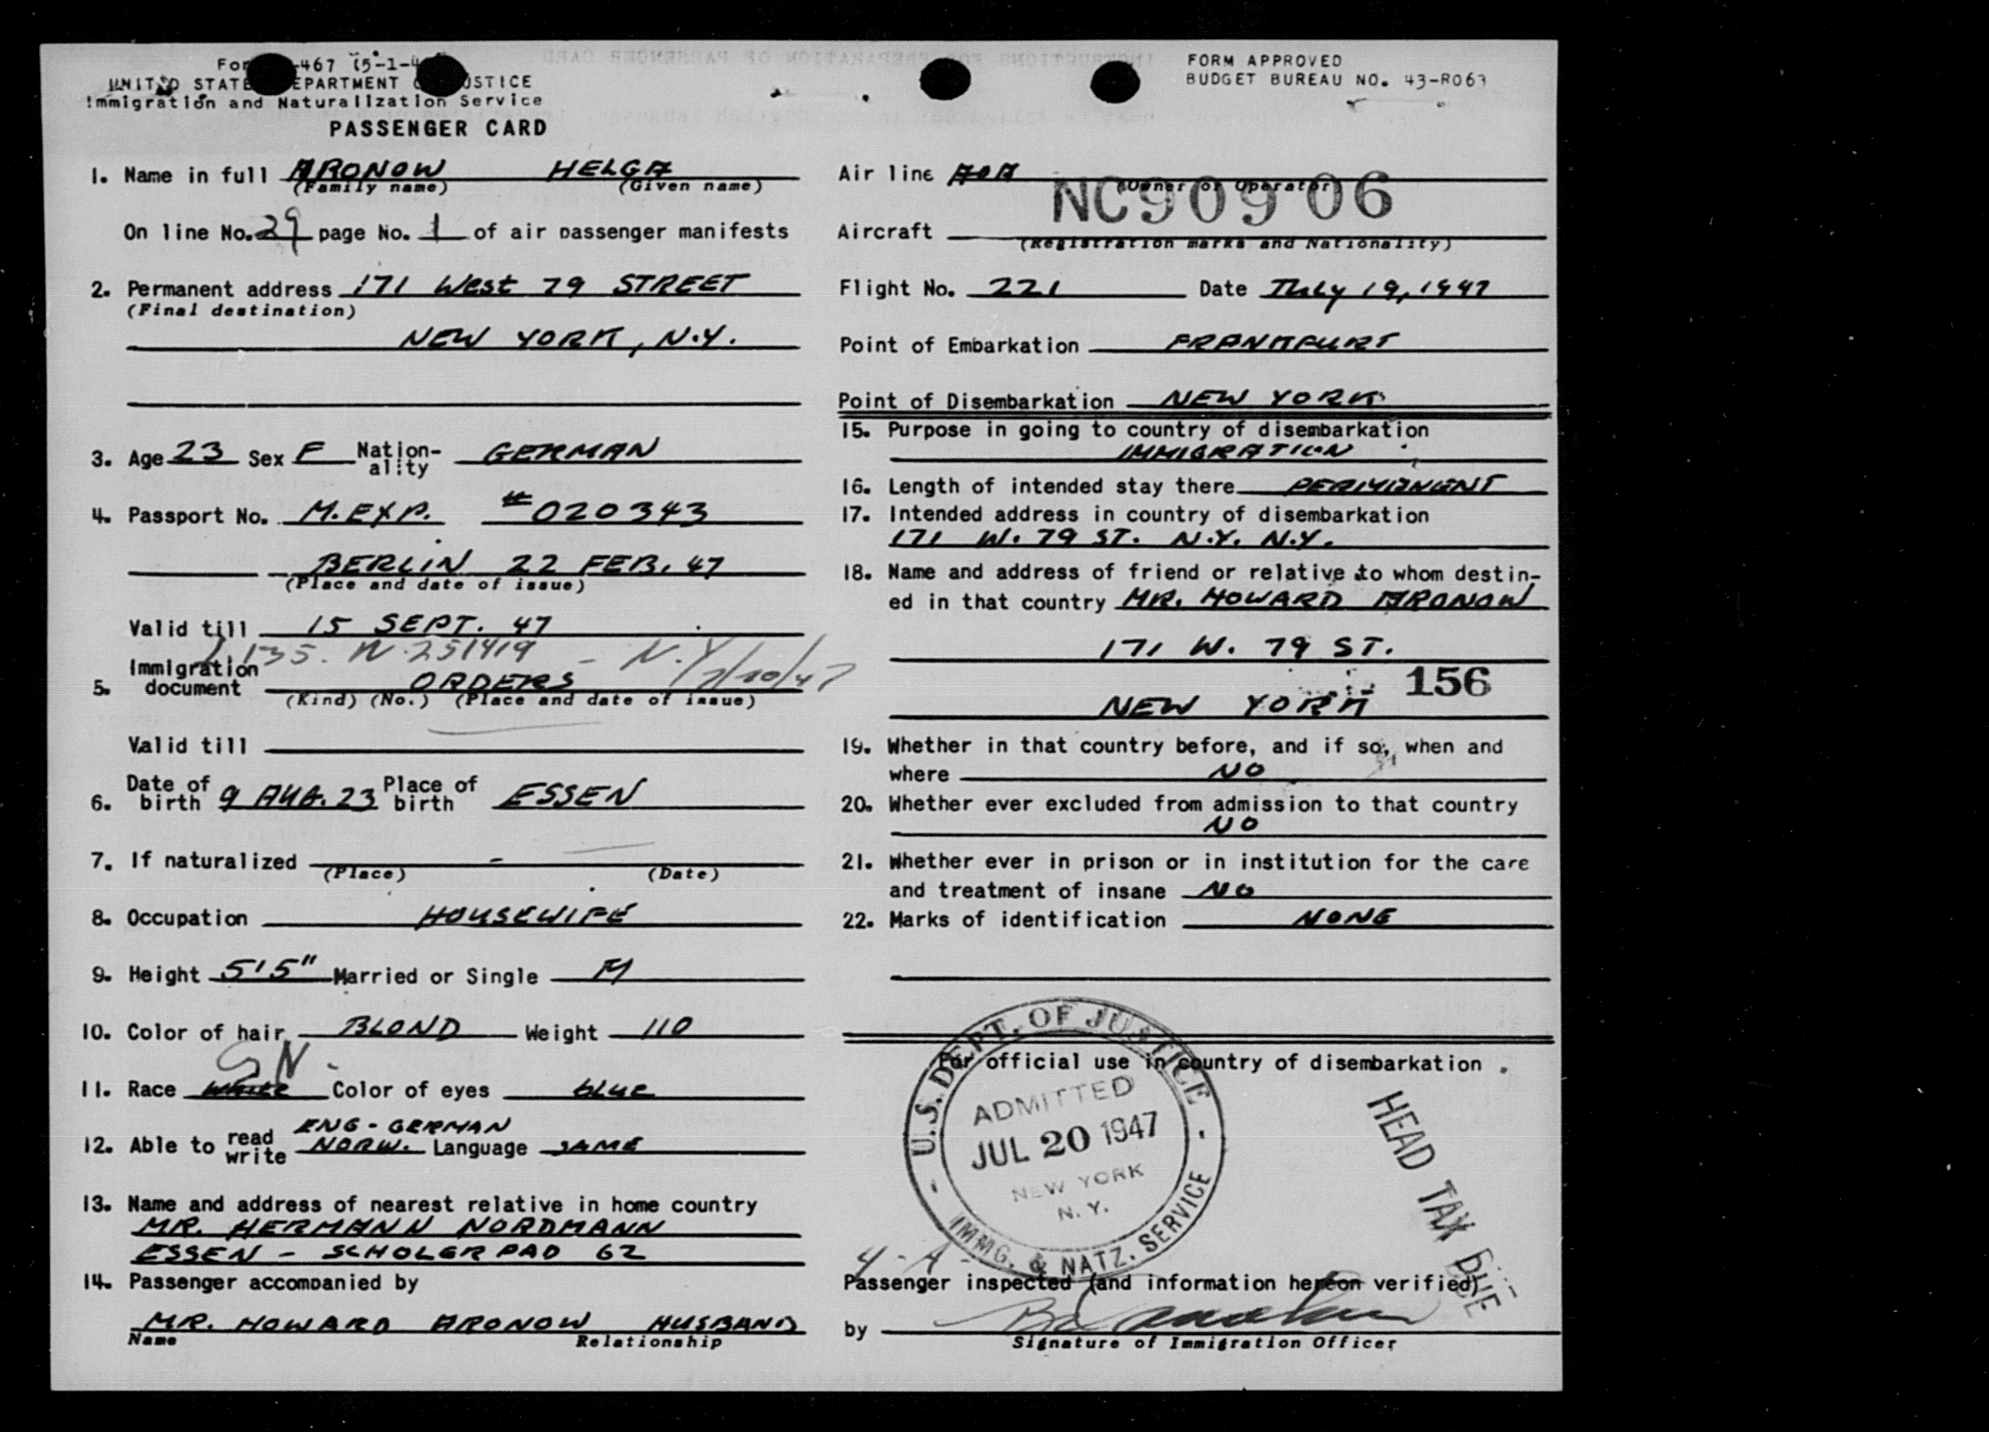 467 (5-1-4
UNITED STATE EPARTMENT STICE
Immigration and Naturalization Service
PASSENGER CARD
FORM APPROVED
BUDGET BUREAU NO. 43-R063
1. Name in full ARONOW HELGA
(Family name) (Given name)
On line No. 29 page No. 1 of air passenger manifests
2. Permanent address 171 West 79 STREET
(Final destination)
NEW YORK, N.Y.
3. Age 23 Sex F Nation-ality GERMAN
4. Passport No. M.EXP. #020343
BERLIN 22 FEB. 47
(Place and date of issue)
Valid till 15 SEPT. 47
N.Y.
5. Immigration document ORDERS
(Kind) (No.) (Place and date of issue)
Valid till
6. Date of birth 9 AUG. 23 Place of birth ESSEN
7. If naturalized -
(Place) (Date)
8. Occupation HOUSEWIFE
9. Height 5'5" Married or Single M
10. Color of hair BLOND Weight 110
SN
11. Race White Color of eyes blue
12. Able to read write ENG-GERMAN NORW. Language SAME
13. Name and address of nearest relative in home country
MR. HERMANN NORDMANN
ESSEN - SCHOLERPAD 62
14. Passenger accompanied by
MR. HOWARD ARONOW HUSBAND
Name Relationship
Air line AOA
(Owner or Operator)
NC90906
Aircraft
(Registration marks and Nationality)
Flight No. 221 Date July 19, 1947
Point of Embarkation FRANKFURT
Point of Disembarkation NEW YORK
15. Purpose in going to country of disembarkation
IMMIGRATION
16. Length of intended stay there PERMANENT
17. Intended address in country of disembarkation
171 W. 79 ST. N.Y. N.Y.
18. Name and address of friend or relative to whom destin-
ed in that country MR. HOWARD ARONOW
171 W. 79 ST.
156
NEW YORK
19. Whether in that country before, and if so, when and
where NO
20. Whether ever excluded from admission to that country
NO
21. Whether ever in prison or in institution for the care
and treatment of insane NO
22. Marks of identification NONE
For official use in country of disembarkation
U.S. DEPT. OF JUSTICE
ADMITTED
JUL 20 1947
NEW YORK
N.Y.
IMMG. & NATZ. SERVICE
HEAD TAX DUE
4-A-
Passenger inspected (and information hereon verified)
by
Signature of Immigration Officer